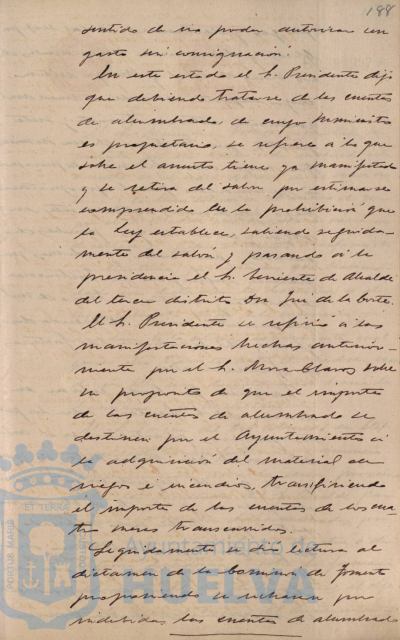 188
sentido de no poder autorizar un
gasto sin consignación.
En este estado el Sr. Presidente dijo
que debiendo tratarse de las cuentas
de alumbrado, de cuyo suministro
es propietario, se refiere a lo que
sobre el asunto tiene ya manifestado
y se retira del salón por estimarse
comprendido en la prohibición que
la ley establece, saliendo seguida-
mente del salón y pasando a la
presidencia el Sr. Teniente de Alcalde
del tercer distrito Don José de la Corte.
El Sr. Presidente se refirió a las
manifestaciones hechas anterior-
mente por el Sr. Mora Claros sobre
su proposito de que el importe
de las cuentas de alumbrado se
destinen por el Ayuntamiento a
la adquisición del material de
riegos e incendios, transfiriendo
el importe de las cuentas de los cua-
tro meses transcurridos.
Seguidamente se dió lectura al
dictamen de la Comisión de Fomento
proponiendo se rechacen por
indebidas las cuentas de alumbrado
PORTUS MARIS ET TERRA
Ayuntamiento de
HUELVA